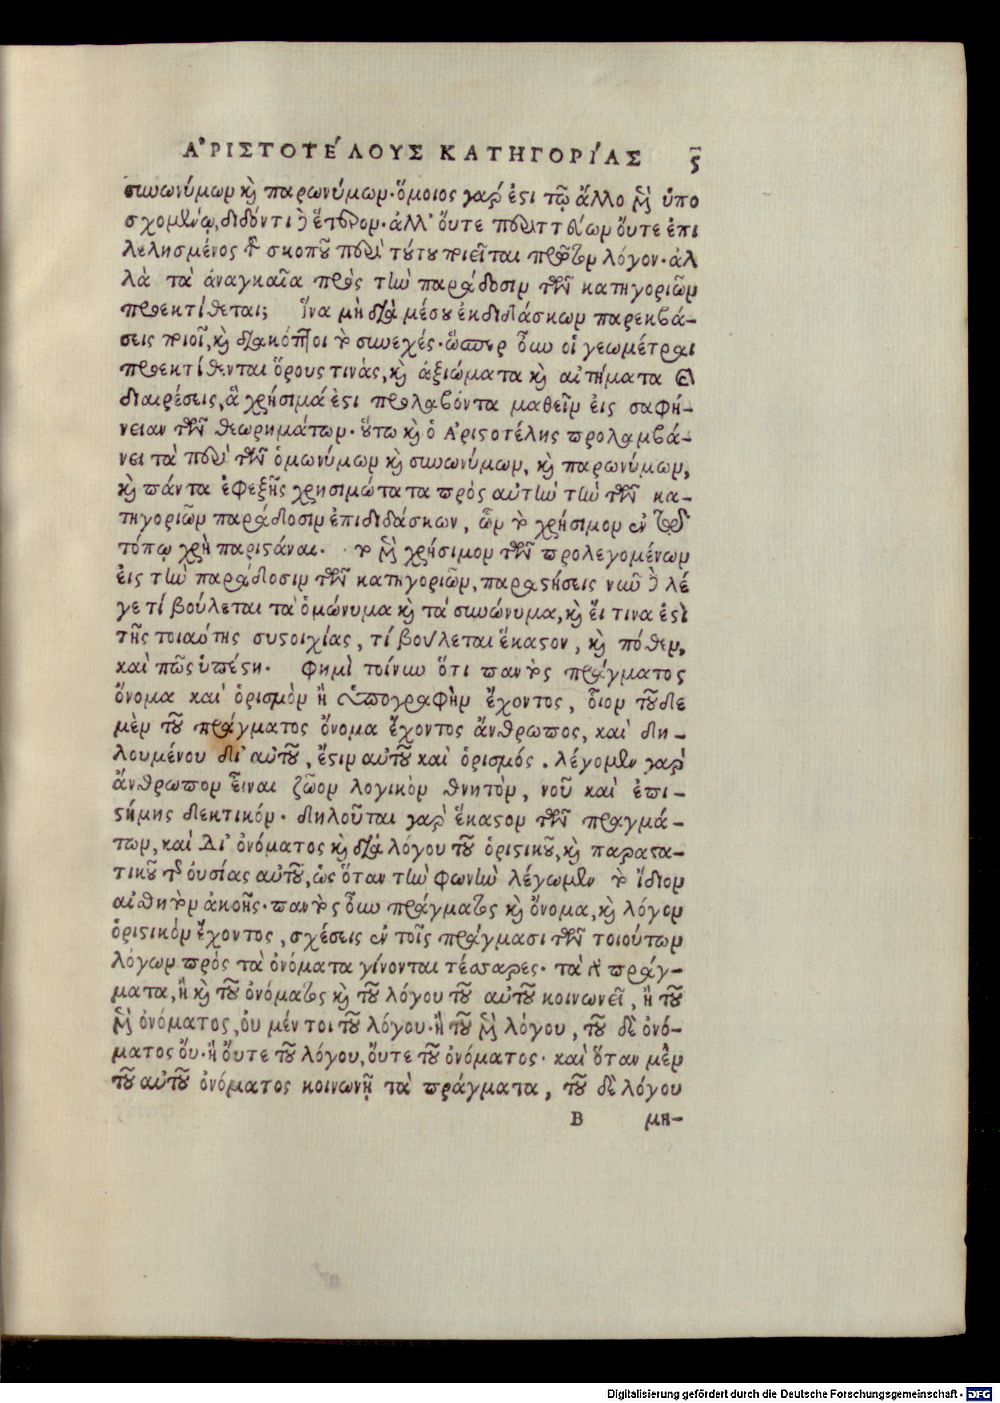 ΑΡΙΣΤΟΤΕΛΟΥΣ ΚΑΤΗΓΟΡΙΑΣ ϛ
συνωνύμων καὶ παρωνύμων· ὅμοιος γάρ ἐστι τῷ ἄλλο μὲν ὑπο
σχομένῳ, διδόντι δὲ ἕτερον. ἀλλ' οὔτε περιττεύων οὔτε ἐπι
λελησμένος τοῦ σκοποῦ περὶ τούτου ποιεῖται πρῶτον λόγον· ἀλ
λὰ τὰ ἀναγκαῖα πρὸς τὴν παράδοσιν τῶν κατηγοριῶν
προεκτίθεται; ἵνα μὴ διὰ μέσου ἐκδιδάσκων παρεκβά-
σεις ποιοῖ, καὶ διακόπτοι τὸ συνεχές· ὥσπερ οὖν οἱ γεωμέτραι
προεκτίθενται ὅρους τινὰς, καὶ ἀξιώματα καὶ αἰτήματα καὶ
διαιρέσεις, ἃ χρήσιμά ἐστι προλαβόντα μαθεῖν εἰς σαφή-
νειαν τῶν θεωρημάτων· οὕτω καὶ ὁ Ἀριστοτέλης προλαμβά-
νει τὰ περὶ τῶν ὁμωνύμων καὶ συνωνύμων, καὶ παρωνύμων,
καὶ πάντα ἐφεξῆς χρησιμώτατα πρὸς αὐτὴν τὴν τῶν κα-
τηγοριῶν παράδοσιν ἐπιδιδάσκων, ὧν τὸ χρήσιμον ἐν τῷδε
τόπῳ χρὴ παριστάναι. τὸ μὲν χρήσιμον τῶν προλεγομένων
εἰς τὴν παράδοσιν τῶν κατηγοριῶν, παραστήσεις νῦν δὲ λέ
γε τί βούλεται τὰ ὁμώνυμα καὶ τὰ συνώνυμα, καὶ εἴ τινα ἐστὶ
τῆς τοιαύτης συστοιχίας, τί βούλεται ἕκαστον, καὶ πόθεν,
καὶ πῶς ὑπέστη. Φημὶ τοίνυν ὅτι παντὸς πράγματος
ὄνομα καὶ ὁρισμὸν ἢ ὑπογραφὴν ἔχοντος, οἷον τοῦδε
μὲν τοῦ πράγματος ὄνομα ἔχοντος ἄνθρωπος, καὶ δη-
λουμένου δι' αὐτοῦ, ἔστιν αὐτοῦ καὶ ὁρισμός. λέγομεν γὰρ
ἄνθρωπον εἶναι ζῷον λογικὸν θνητὸν, νοῦ καὶ ἐπι-
στήμης δεκτικόν· δηλοῦται γὰρ ἕκαστον τῶν πραγμά-
των, καὶ δι' ὀνόματος καὶ διὰ λόγου τοῦ ὁριστικοῦ, καὶ παραστα-
τικοῦ τῆς οὐσίας αὐτοῦ, ὡς ὅταν τὴν φωνὴν λέγωμεν τὸ ἴδιον
αἰσθητὸν ἀκοῆς. παντὸς οὖν πράγματος καὶ ὄνομα, καὶ λόγον
ὁριστικὸν ἔχοντος, σχέσεις ἐν τοῖς πράγμασι τῶν τοιούτων
λόγων πρὸς τὰ ὀνόματα γίνονται τέσσαρες· τὰ γὰρ πράγ-
ματα, ἢ καὶ τοῦ ὀνόματος καὶ τοῦ λόγου τοῦ αὐτοῦ κοινωνεῖ, ἢ τοῦ
μὲν ὀνόματος, οὐ μέν τοι τοῦ λόγου· ἢ τοῦ μὲν λόγου, τοῦ δὲ ὀνό-
ματος οὔ· ἢ οὔτε τοῦ λόγου, οὔτε τοῦ ὀνόματος· καὶ ὅταν μὲν
τοῦ αὐτοῦ ὀνόματος κοινωνῇ τὰ πράγματα, τοῦ δὲ λόγου
B μη-
Digitalisierung gefördert durch die Deutsche Forschungsgemeinschaft - DFG